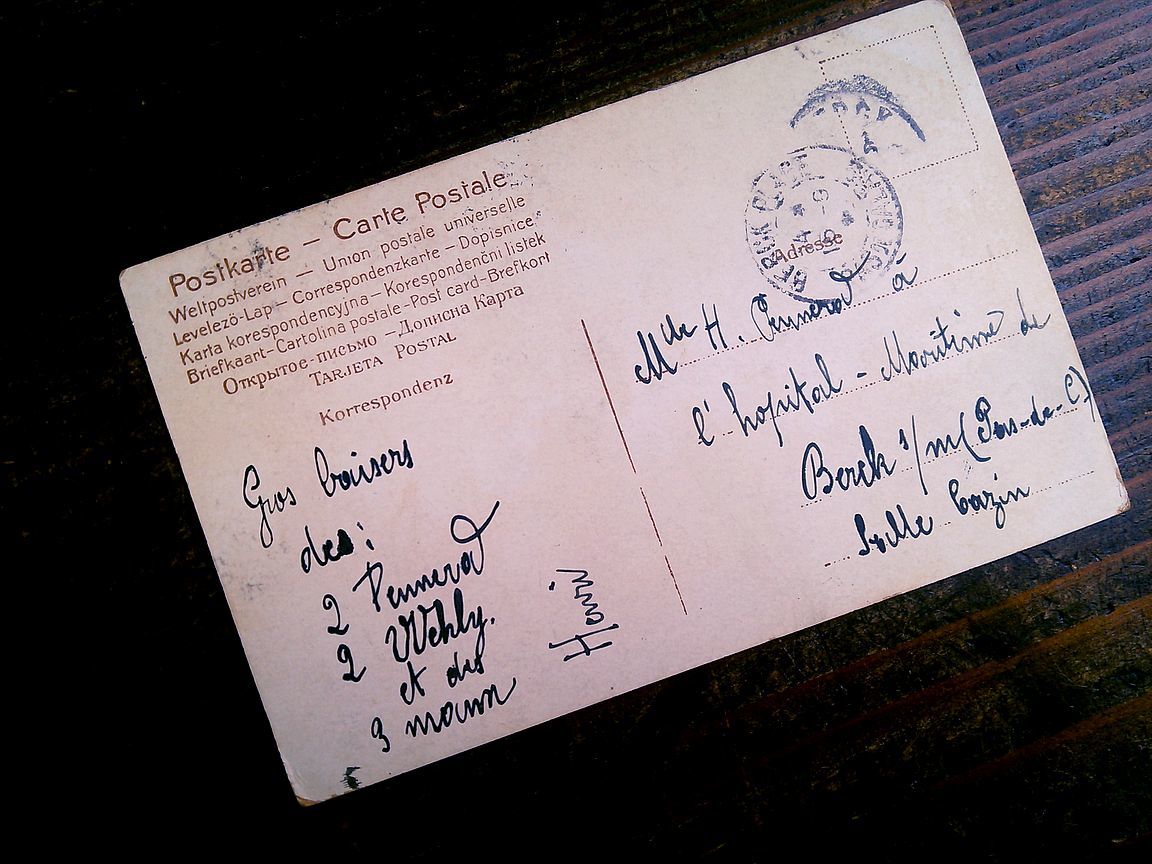 Postkarte – Carte Postale
Weltpostverein – Union postale universelle
Levelező-Lap – Correspondenzkarte – Dopisnice
Karta korespondencyjna – Korespondenční listek
Briefkaart–Cartolina postale–Post card–Brefkort
Открытое-письмо –Дописна Карта
TARJETA POSTAL
Korrespondenz
Gros baisers
des:
2 Pennerad
2 Wehly.
et des
3 moum
Henri
BERCK PLAGE
Adresse
Mlle H. Pennerad à
l'hopital - Maritime de
Berck s/m (Pas-de-C)
Salle Cazin